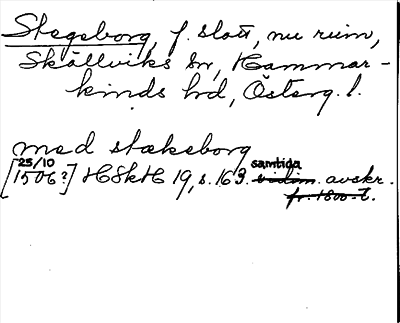 Stegeborg, f. slott, nu ruin,
Skällviks sn, Hammar-
kinds hd, Österg. l.
med stækeborg
[25/10 1506?] HSkH 19, s. 163. samtida vidim. avskr.
fr. 1800-t.